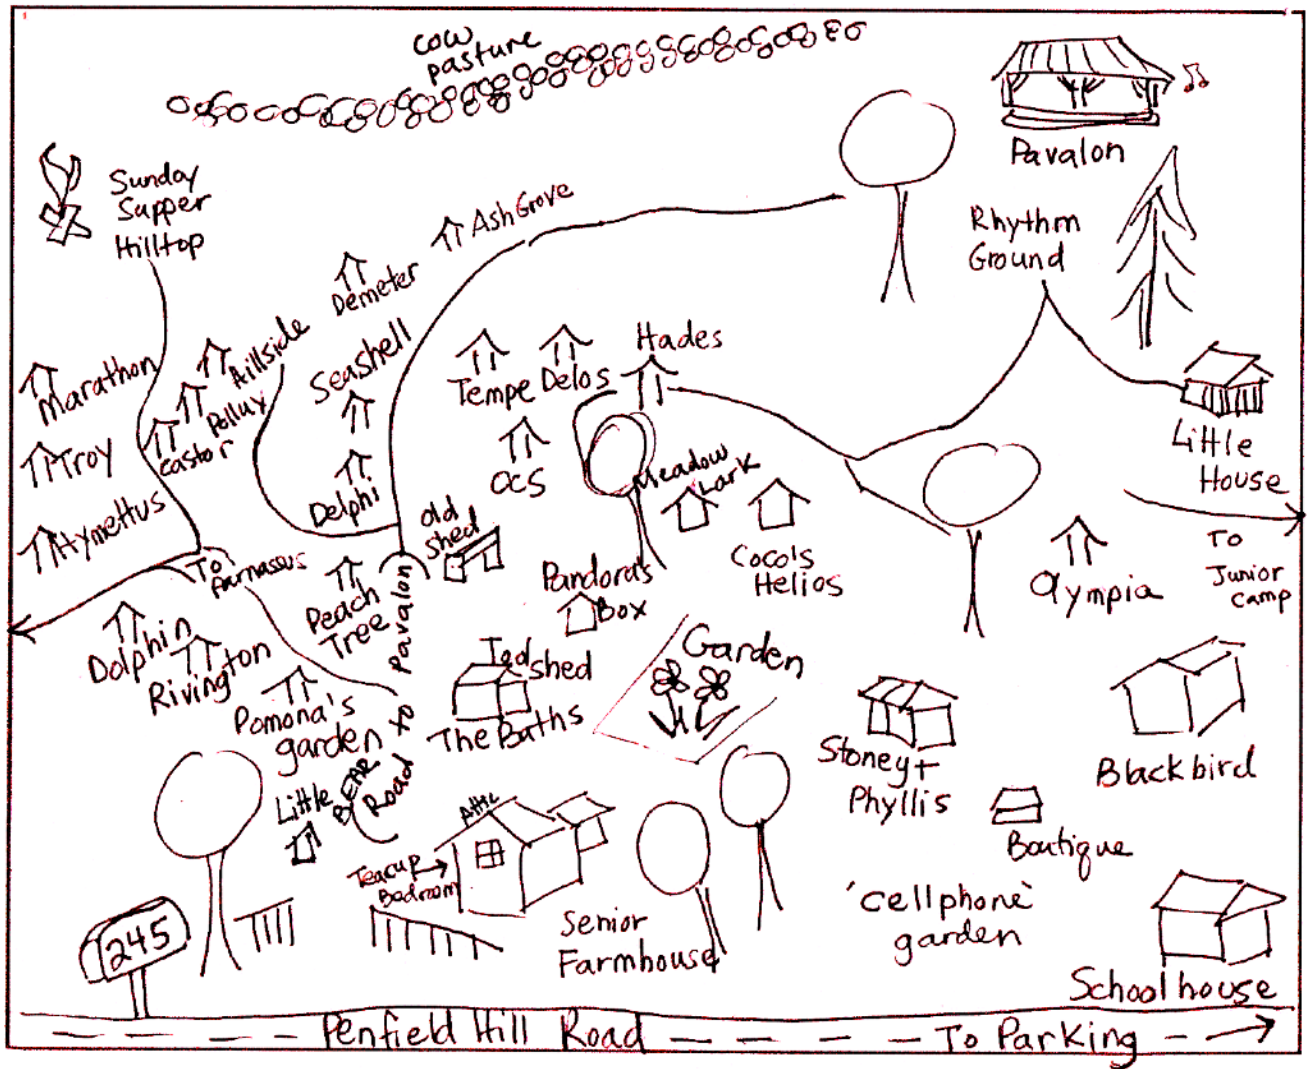 cow
pasture
Pavalon
Sunday
Supper
Hilltop
Ash Grove
Rhythm
Ground
Demeter
Hillside
Seashell
Hades
Tempe Delos
Marathon
Pollux
Castor
Troy
OCS
Meadow
Lark
Little
House
Hymettus
Delphi
old
shed
To
Parnassus
Peach
Tree
Pandora's
Box
Coco's
Helios
Olympia
To
Junior
camp
Dolphin
Rivington
Pomona's
garden
Road to Pavalon
Tool shed
The Baths
Garden
Stoney +
Phyllis
Blackbird
Little
BEAR
Attic
Teacup
Bedroom
Boutique
'cellphone'
garden
245
Senior
Farmhouse
Schoolhouse
Penfield Hill Road
To Parking